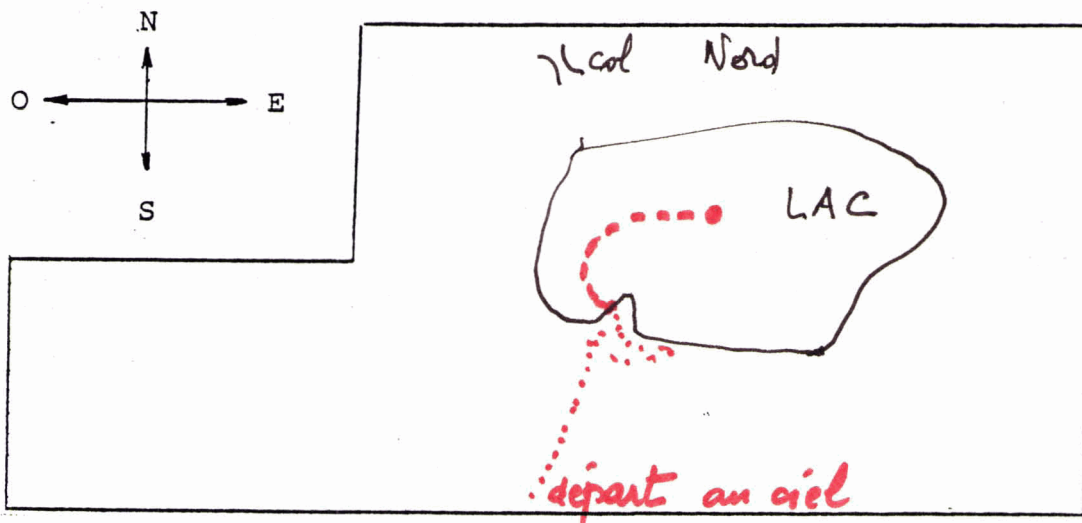 N
O E
S
col Nord
LAC
départ au ciel